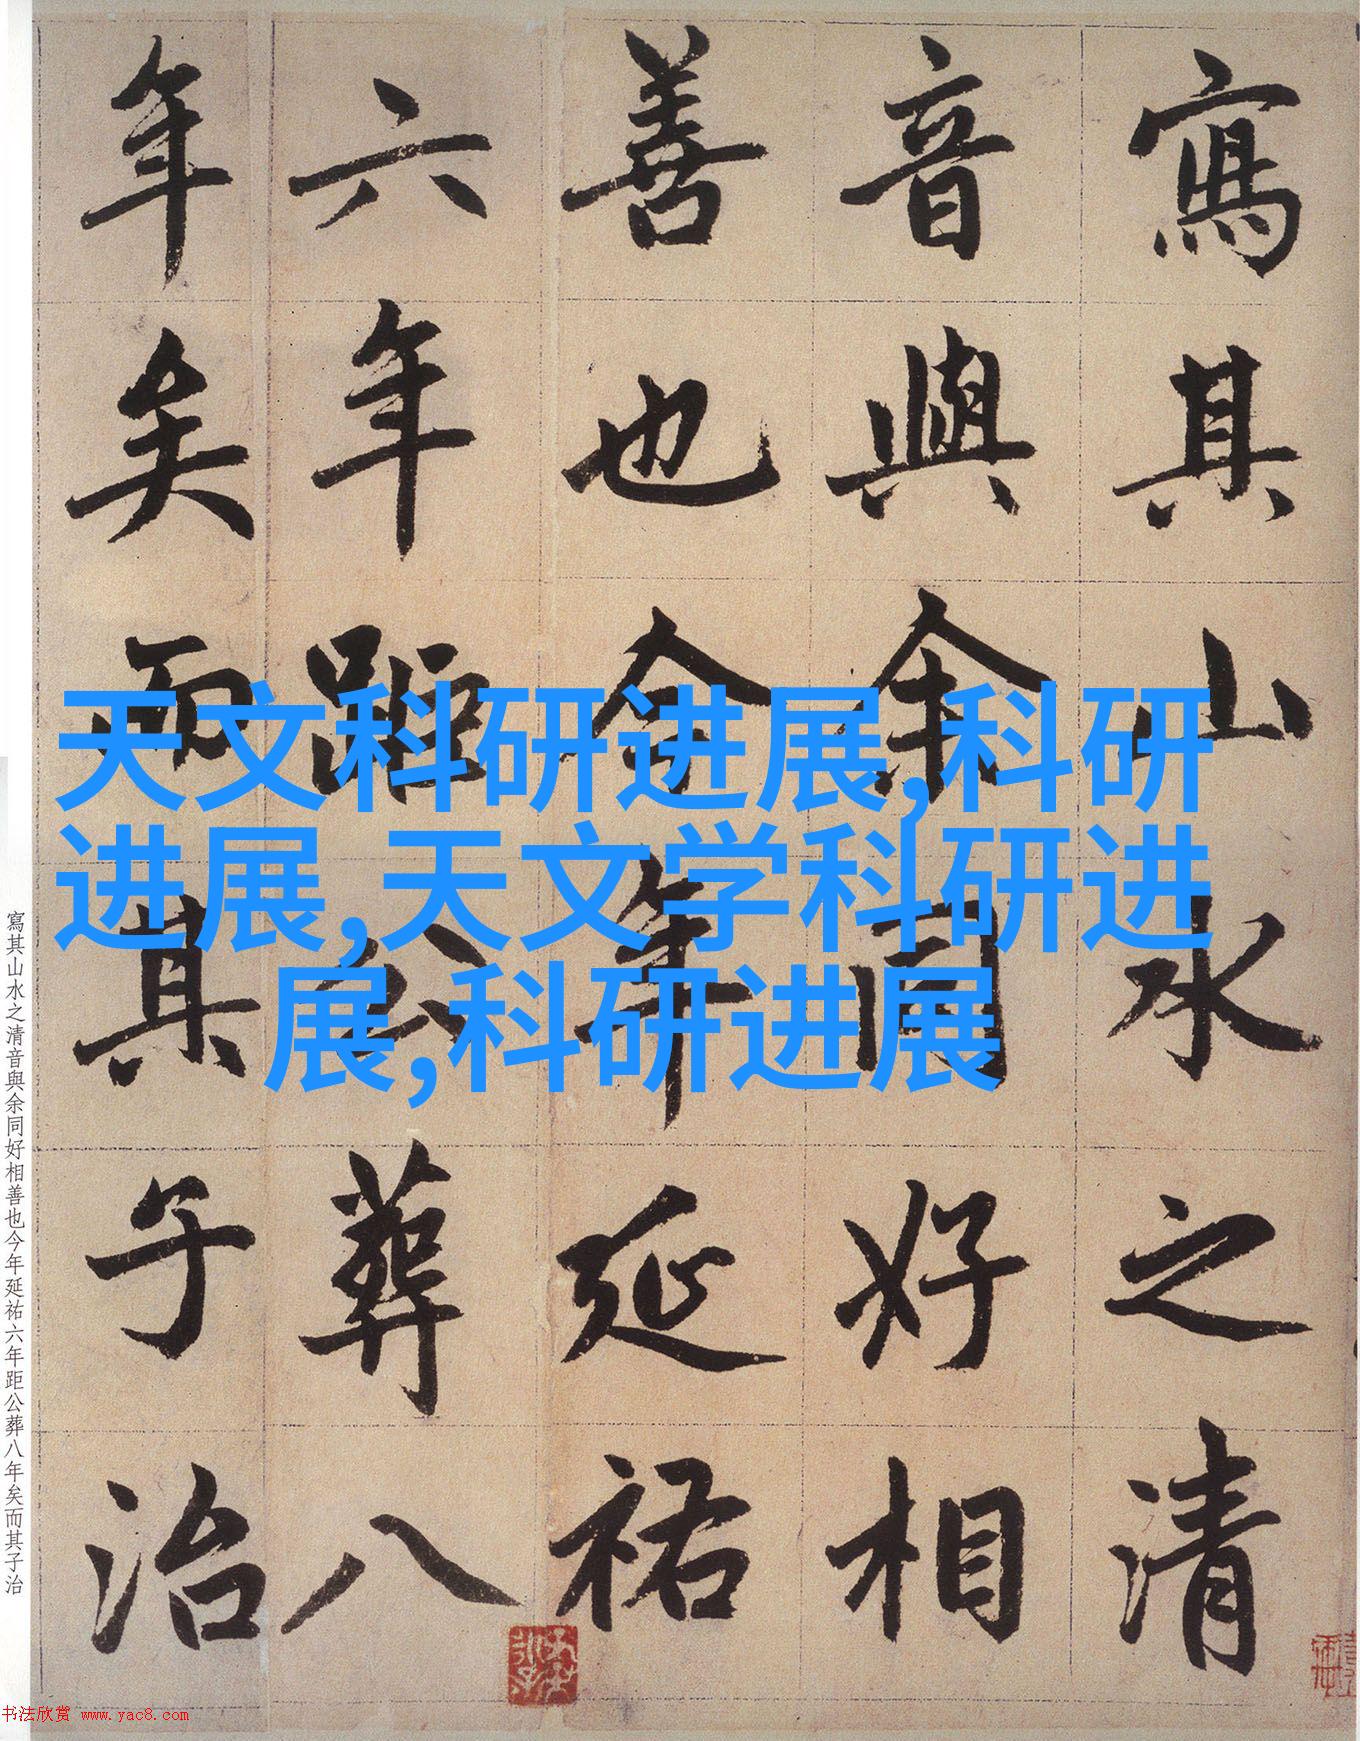 寫其山水之清
音與余同好相
善也今年延祐
六年距公葬八
年矣而其子治
天文科研进展,科研
进展,天文学科研进
展,科研进展
寫其山水之清音與余同好相善也今年延祐六年距公葬八年矣而其子治
书法欣赏 www.yac8.com